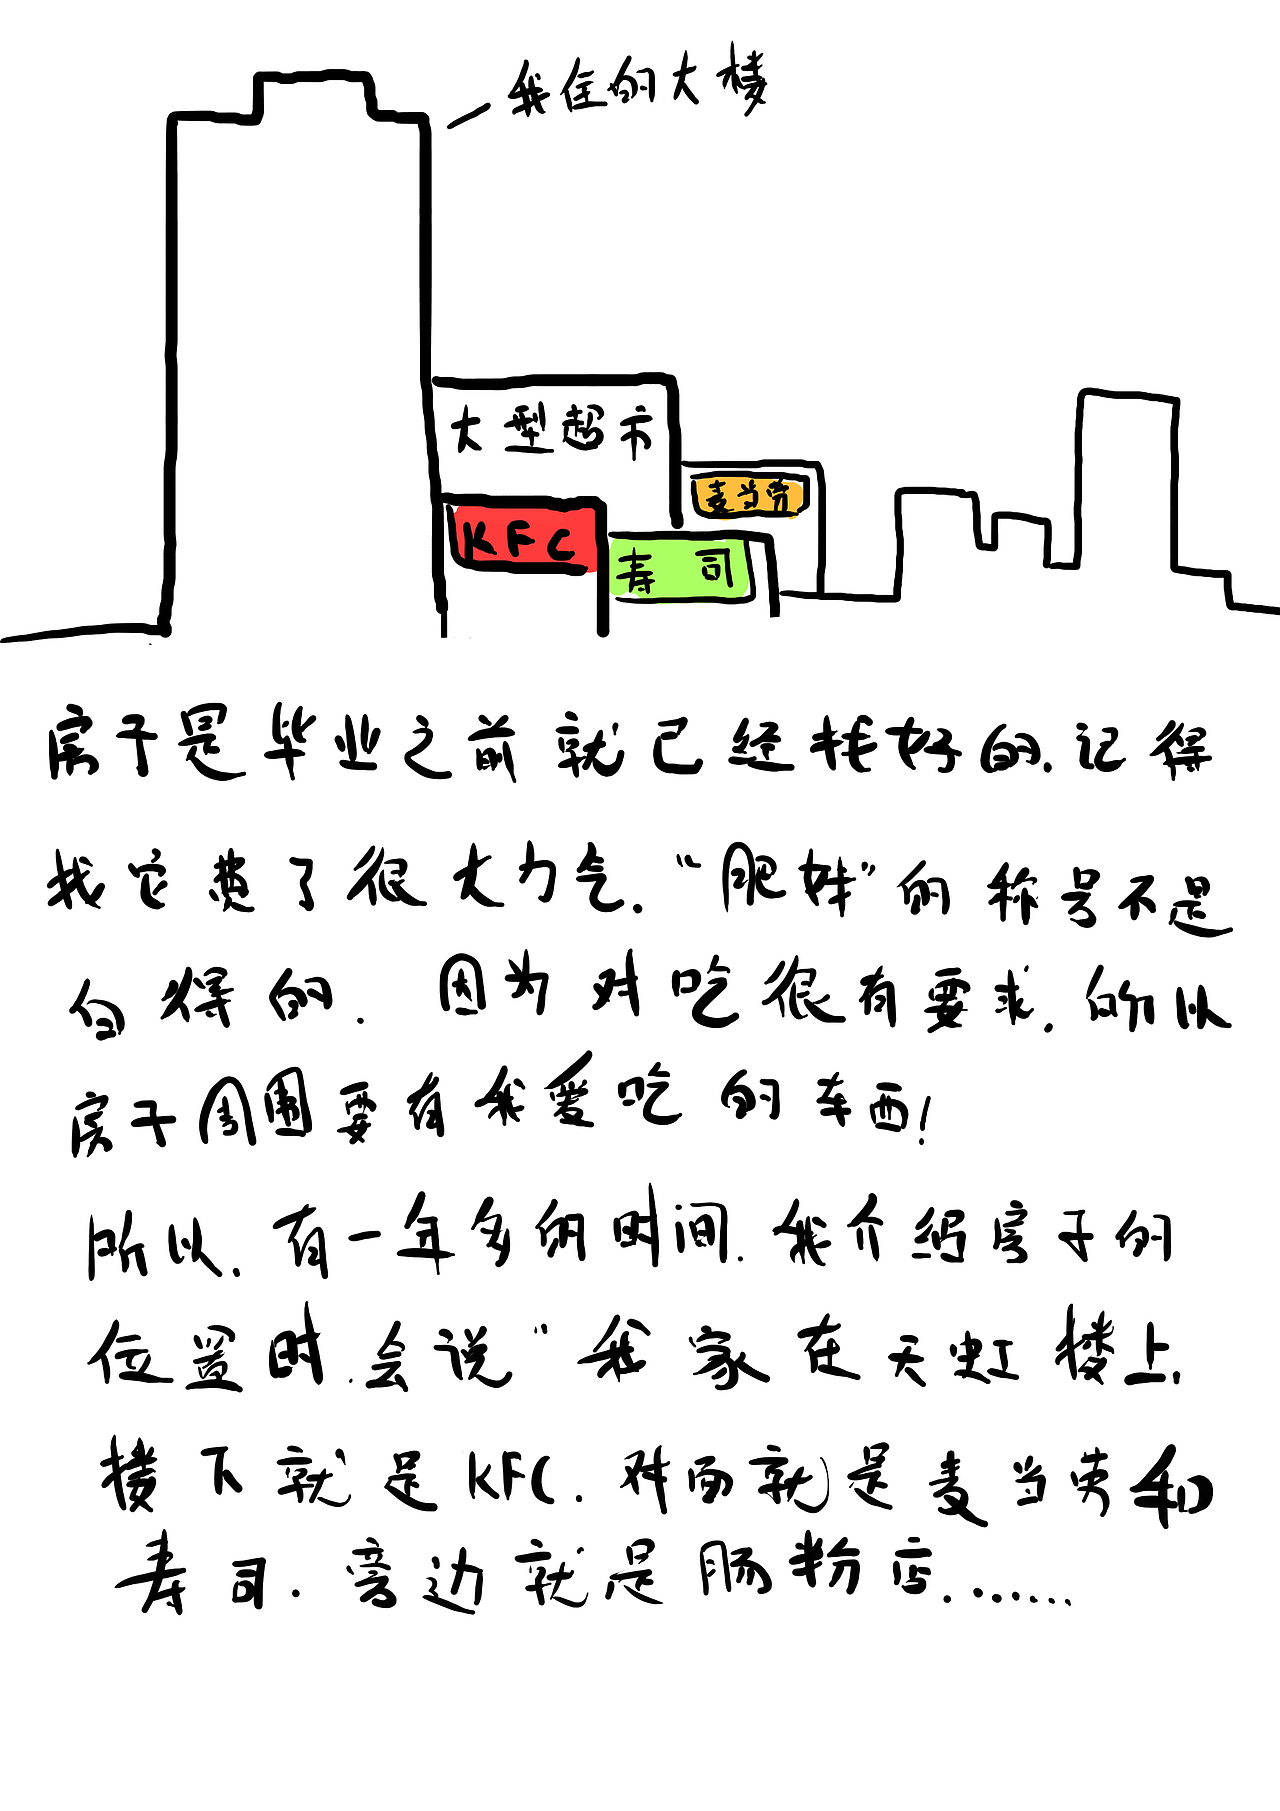 我住的大楼
大型超市
麦当劳
KFC
寿司
房子是毕业之前就已经找好的.记得
找它费了很大力气."肥妹"的称号不是
白得的.因为对吃很有要求.所以
房子周围要有我爱吃的东西!
所以.有一年多的时间.我介绍房子的
位置时.会说"我家在天虹楼上.
楼下就是KFC.对面就是麦当劳和
寿司.旁边就是肠粉店.......